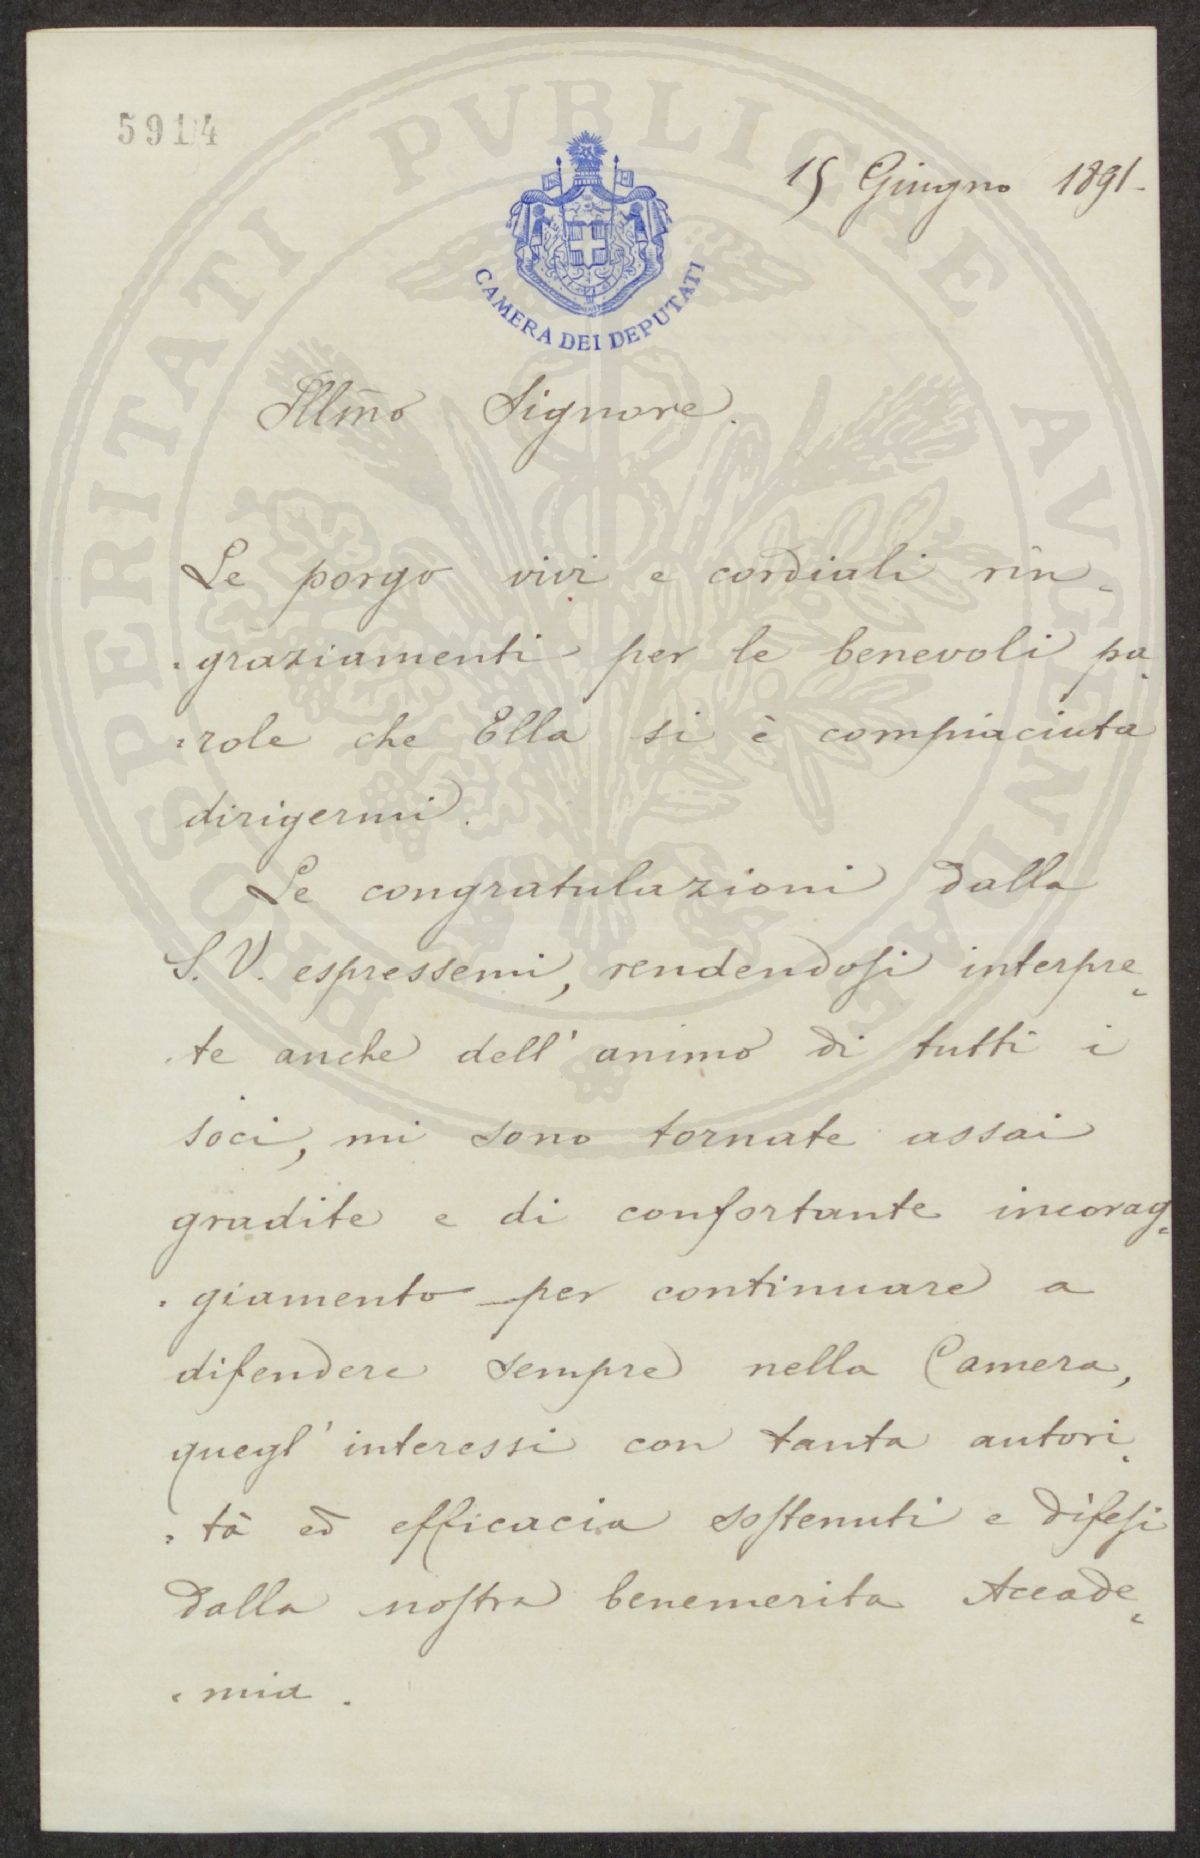 5914
15 Giugno 1891-
CAMERA DEI DEPUTATI
Illm̃o Signore.
Le porgo vivi e cordiali rin-
graziamenti per le benevoli pa-
role che Ella si è compiaciuta
dirigermi.
Le congratulazioni dalla
S. V. espressemi, rendendosi interpre-
te anche dell'animo di tutti i
soci, mi sono tornate assai
gradite e di confortante incorag-
giamento per continuare a
difendere sempre nella Camera,
quegl'interessi con tanta autori-
tà ed efficacia sostenuti e difesi
dalla nostra benemerita Accade-
mia.
PROSPERITATI PVBLICAE AVGENDAE